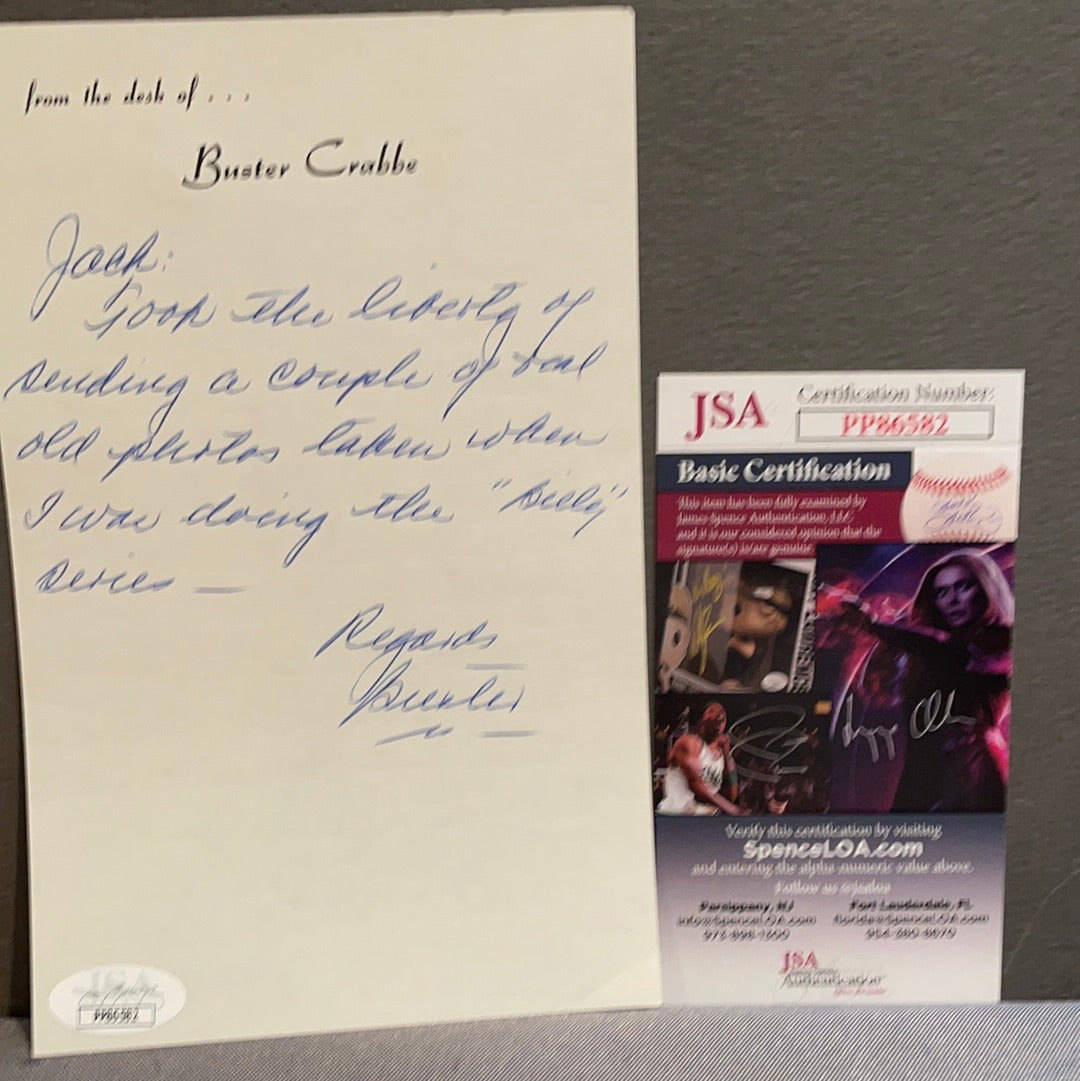 from the desk of . . .
Buster Crabbe
Jack:
Took the liberty of
sending a couple of real
old photos taken when
I was doing the "Billy"
series —
Regards
Buster
JSA
PP86582
JSA
Certification Number:
PP86582
Basic Certification
This item has been fully examined by
James Spence Authentication, LLC
and it is our considered opinion that the
signature(s) is/are genuine
Verify this certification by visiting
SpenceLOA.com
and entering the alpha-numeric value above.
Follow us @jsaloa
Parsippany, NJ
Fort Lauderdale, FL
info@SpenceLOA.com
florida@SpenceLOA.com
JSA
Authentication